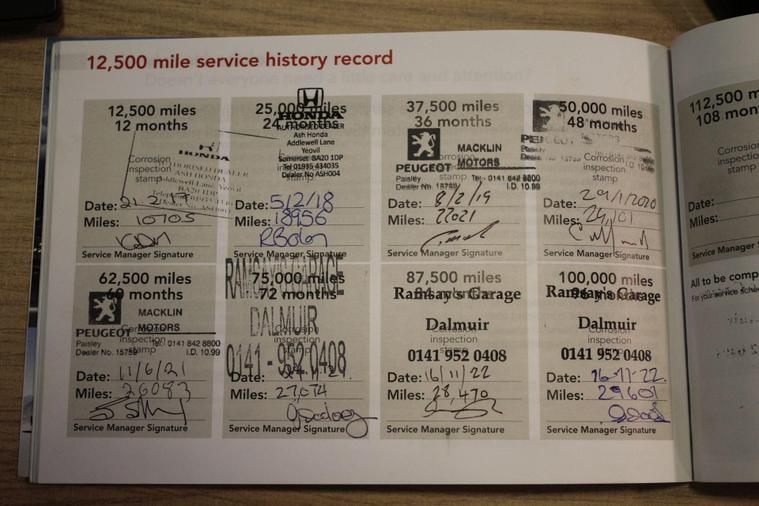 12,500 mile service history record
12,500 miles
12 months
Corrosion
inspection
stamp
HONDA
Date: 21.2.17
Miles: 10705
Service Manager Signature
25,000 miles
24 months
Ash Honda
Addlewell Lane
Yeovil
Somerset BA20 1DP
Tel 01935 434035
Dealer No ASH004
Date: 5/2/18
Miles: 18956
Service Manager Signature
37,500 miles
36 months
MACKLIN
MOTORS
PEUGEOT
Paisley Tel: 0141 842 8800
Dealer No. 15759 I.D. 10.99
Date: 8/2/19
Miles: 22021
Service Manager Signature
50,000 miles
48 months
Corrosion
inspection
stamp
Date: 29/1/2020
Miles:
Service Manager Signature
62,500 miles
60 months
MACKLIN
MOTORS
PEUGEOT
Paisley Tel: 0141 842 8800
Dealer No. 15759 I.D. 10.99
Date: 11/6/21
Miles: 26083
Service Manager Signature
RAMSAY'S GARAGE
75,000 miles
72 months
DALMUIR
0141-952 0408
Date:
Miles: 27,074
Service Manager Signature
87,500 miles
Ramsay's Garage
Dalmuir
inspection
0141 952 0408
Date: 16/11/22
Miles: 28,470
Service Manager Signature
100,000 miles
Ramsay's Garage
Dalmuir
inspection
0141 952 0408
Date: 16-11-22
Miles: 29601
Service Manager Signature
112,500 m
108 mon
Corrosion
inspectio
stamp
Date:
Miles:
Service Manager
All to be comp
For your service sche